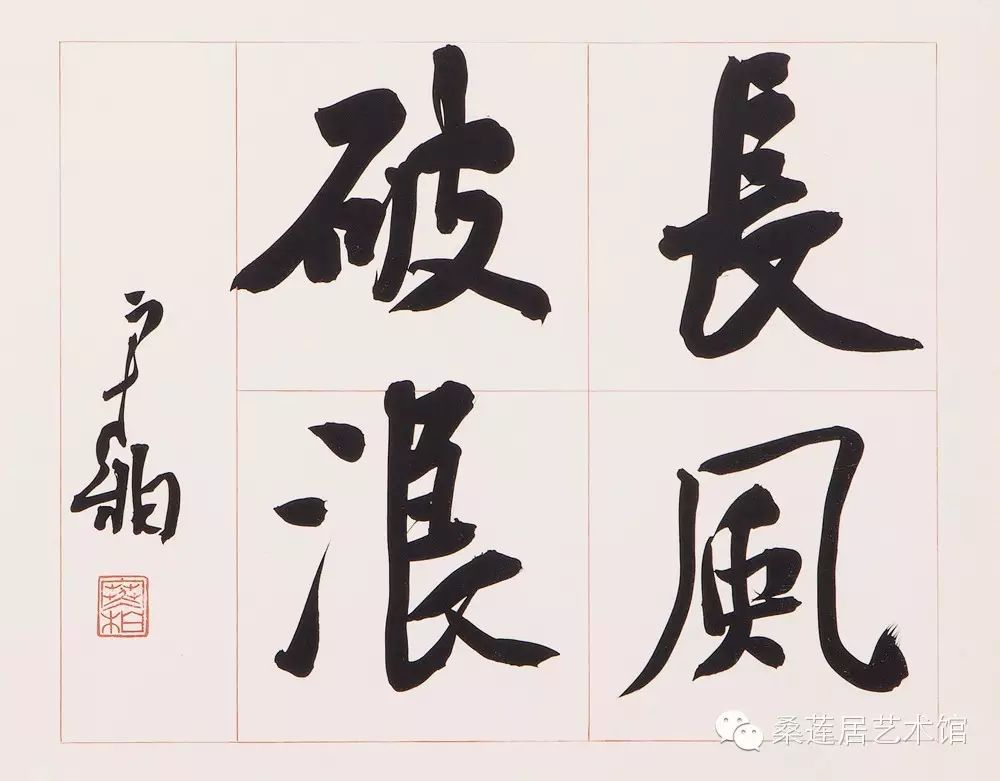 長風
破浪
桑莲居艺术馆